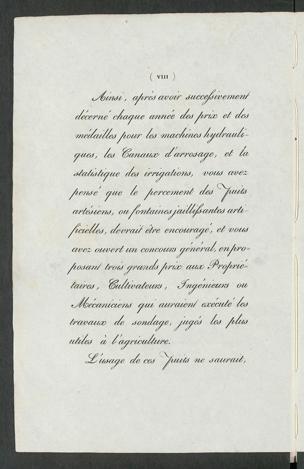 ( VIII )
Ainsi, après avoir successivement
décerné chaque année des prix et des
médailles pour les machines hydrauli-
ques, les Canaux d'arrosage, et la
statistique des irrigations, vous avez
pensé que le percement des Puits
artésiens, ou fontaines jaillissantes arti-
ficielles, devrait être encouragé, et vous
avez ouvert un concours général, en pro-
posant trois grands prix aux Proprié-
taires, Cultivateurs, Ingénieurs ou
Mécaniciens qui auraient exécuté les
travaux de sondage, jugés les plus
utiles à l'agriculture.
L'usage de ces Puits ne saurait,